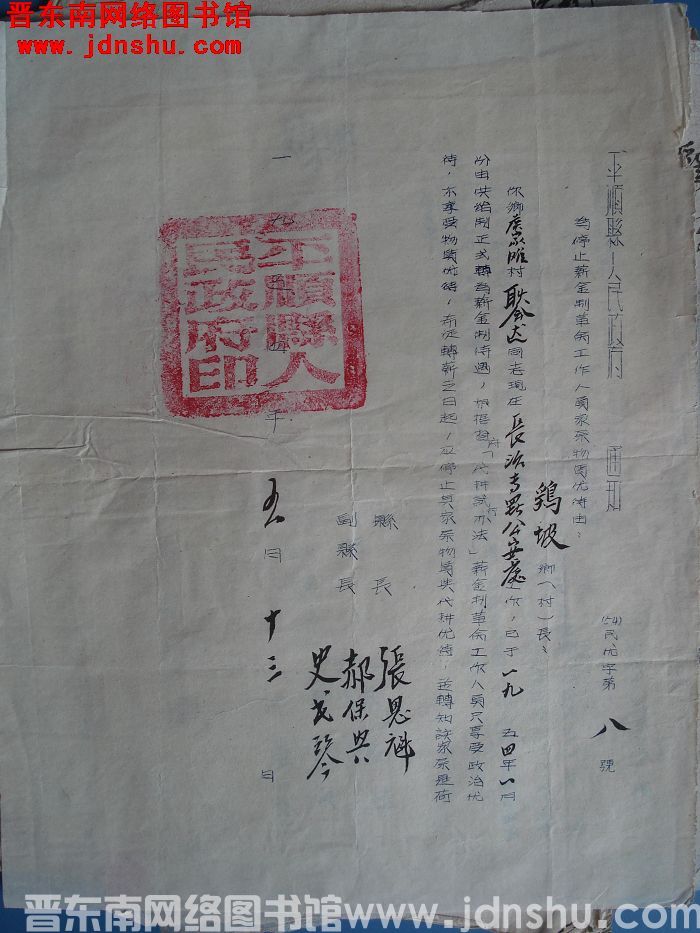 晋东南网络图书馆
www.jdnshu.com
平順縣人民政府 通知
(54)民优字第八號
为停止薪金制革命工作人員家屬物質优待由：
鶏坡鄉(村)長：
你鄉 村 同志現在長治专署公安處工作，已于一九五四年一月
份由供給制正式轉为薪金制待遇，根据省府「代耕試行办法」薪金制革命工作人員只享受政治优
待，不享受物質优待，希從轉薪之日起，应停止其家屬物質与代耕优待，並轉知該家屬是荷
縣長 張思科
副縣長 郝保興
史
一九五四年五月十三日
平順縣人
民政府印
晋东南网络图书馆 www.jdnshu.com